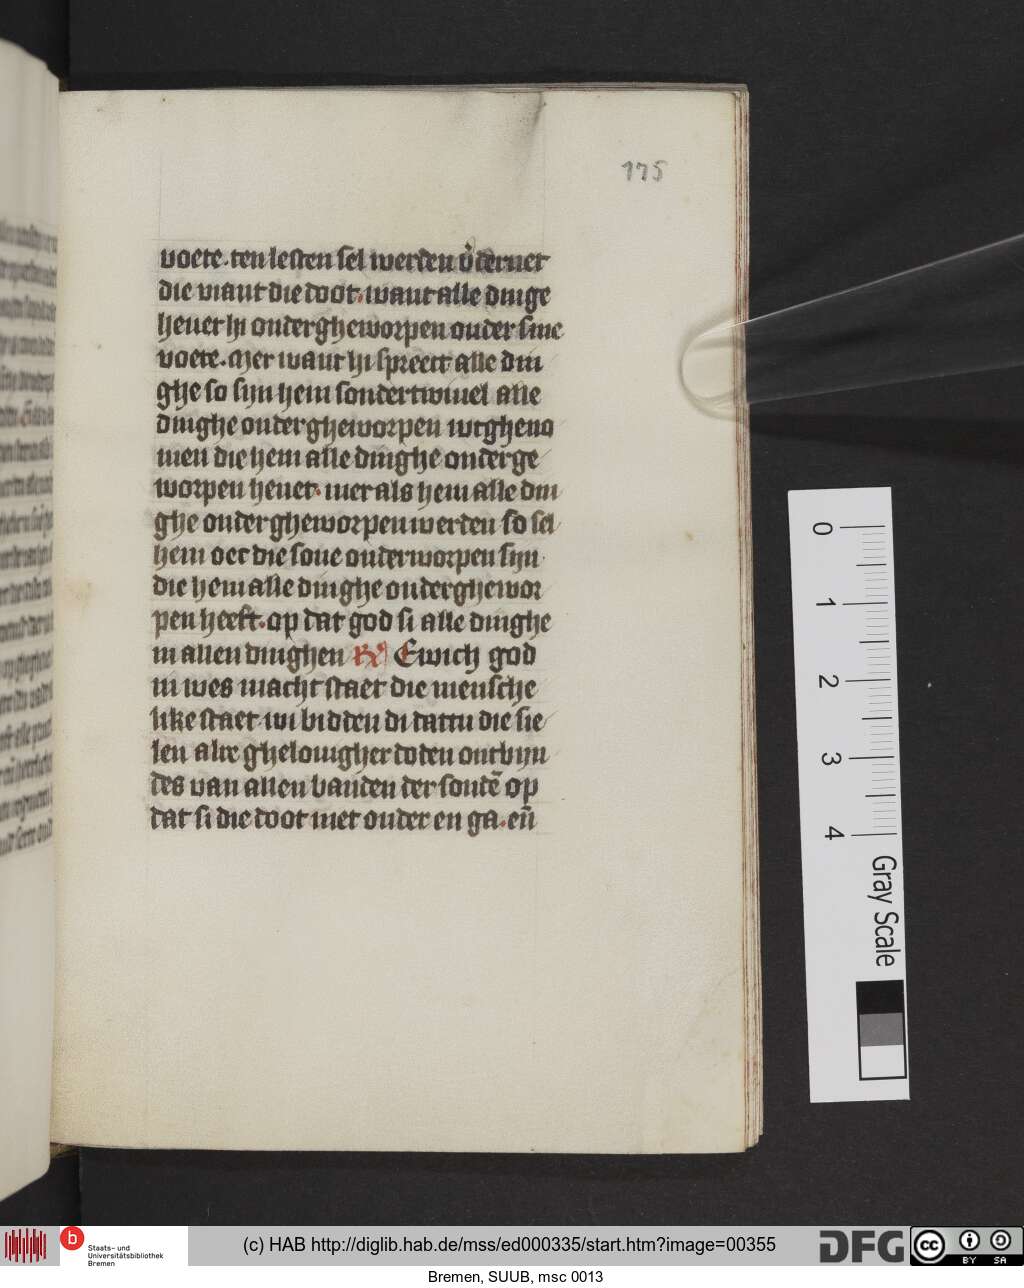 175
voete. ten lesten sel werden v̉deruet
die viant die doot. want alle dinge
heuet hi ondergheworpen onder sine
voete. Mer want hi spreect alle din
ghe so sijn hem sonder twiuel alle
dinghe ondergheworpen wtgheno
men die hem alle dinghe onderge
worpen heuet. mer als hem alle din
ghe ondergheworpen werden so sel
hem oec die sone onderworpen sijn.
die hem alle dinghe onderghewor
pen heeft. op dat god si alle dinghe
in allen dinghen R Ewich god
in wes macht staet die mensche
like staet wi bidden di dattu die sie
len alre ghelouigher doden ontbijn
des van allen banden der sondē op
dat si die doot niet onder en ga. en̄
0
1
2
3
4
Gray Scale
b
Staats- und
Universitätsbibliothek
Bremen
(c) HAB http://diglib.hab.de/mss/ed000335/start.htm?image=00355
DFG
cc
BY SA
Bremen, SUUB, msc 0013